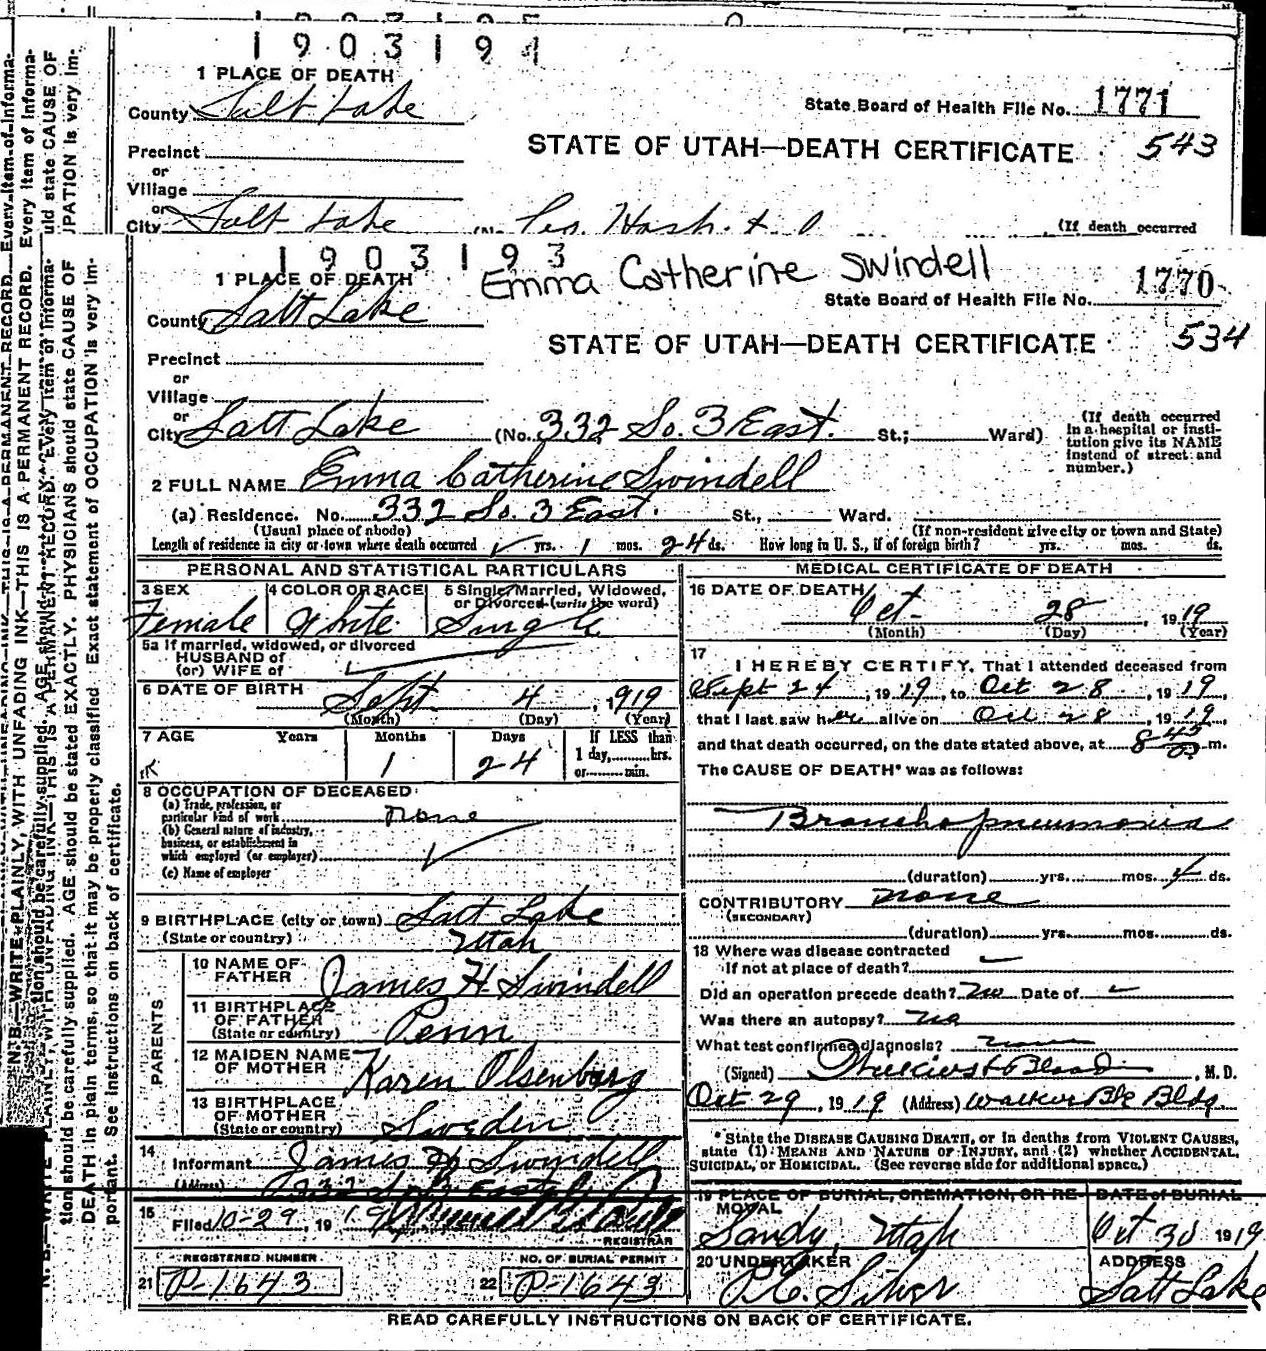 1903194
1 PLACE OF DEATH
County Salt Lake
State Board of Health File No. 1771
Precinct
STATE OF UTAH—DEATH CERTIFICATE 543
or
Village
or
City Salt Lake (No.
(If death occurred
1903193
Emma Catherine Swindell
1 PLACE OF DEATH
State Board of Health File No. 1770
County Salt Lake
STATE OF UTAH—DEATH CERTIFICATE 534
Precinct
or
Village
or
City Salt Lake (No. 332 So. 3 East. St.; Ward)
(If death occurred
in a hospital or insti-
tution give its NAME
instead of street and
number.)
2 FULL NAME Emma Catherine Swindell
(a) Residence. No. 332 So. 3 East. St., Ward.
(Usual place of abode) (If non-resident give city or town and State)
Length of residence in city or town where death occurred yrs. 1 mos. 24 ds. How long in U. S., if of foreign birth? yrs. mos. ds.
PERSONAL AND STATISTICAL PARTICULARS
3 SEX 4 COLOR OR RACE 5 Single, Married, Widowed,
or Divorced (write the word)
Female White Single
5a If married, widowed, or divorced
HUSBAND of
(or) WIFE of
6 DATE OF BIRTH Sept. 4, 1919
(Month) (Day) (Year)
7 AGE Years Months Days If LESS than
1 day, hrs.
or min.
1 24
8 OCCUPATION OF DECEASED
(a) Trade, profession, or
particular kind of work none
(b) General nature of industry,
business, or establishment in
which employed (or employer)
(c) Name of employer
9 BIRTHPLACE (city or town) Salt Lake
(State or country) Utah
PARENTS
10 NAME OF
FATHER James H. Swindell
11 BIRTHPLACE
OF FATHER
(State or country) Penn
12 MAIDEN NAME
OF MOTHER Karen Olsenburg
13 BIRTHPLACE
OF MOTHER
(State or country) Sweden
14
Informant James H. Swindell
(Address) 332 So 3 East
15
Filed 10-29, 1919
REGISTRAR
REGISTERED NUMBER NO. OF BURIAL PERMIT
21 P-1643 22 P-1643
MEDICAL CERTIFICATE OF DEATH
16 DATE OF DEATH
Oct- 28, 1919
(Month) (Day) (Year)
17
I HEREBY CERTIFY, That I attended deceased from
Sept 24, 1919, to Oct 28, 1919,
that I last saw her alive on Oct 28, 1919,
and that death occurred, on the date stated above, at 8 45 m.
The CAUSE OF DEATH* was as follows:
Broncho pneumonia
(duration) yrs. mos. 4 ds.
CONTRIBUTORY none
(SECONDARY)
(duration) yrs. mos. ds.
18 Where was disease contracted
If not at place of death?
Did an operation precede death? no Date of
Was there an autopsy? no
What test confirmed diagnosis?
(Signed) , M. D.
Oct 29, 1919 (Address) Walker Bk Bldg.
*State the DISEASE CAUSING DEATH, or in deaths from VIOLENT CAUSES,
state (1) MEANS AND NATURE OF INJURY, and (2) whether ACCIDENTAL,
SUICIDAL, or HOMICIDAL. (See reverse side for additional space.)
19 PLACE OF BURIAL, CREMATION, OR RE-
MOVAL DATE of BURIAL
Sandy, Utah Oct 30 1919
20 UNDERTAKER ADDRESS
Salt Lake
READ CAREFULLY INSTRUCTIONS ON BACK OF CERTIFICATE.
N. B.—WRITE PLAINLY, WITH UNFADING INK—THIS IS A PERMANENT RECORD. Every item of informa-
tion should be carefully supplied. AGE should be stated EXACTLY. PHYSICIANS should state CAUSE OF
DEATH in plain terms, so that it may be properly classified. Exact statement of OCCUPATION is very im-
portant. See instructions on back of certificate.